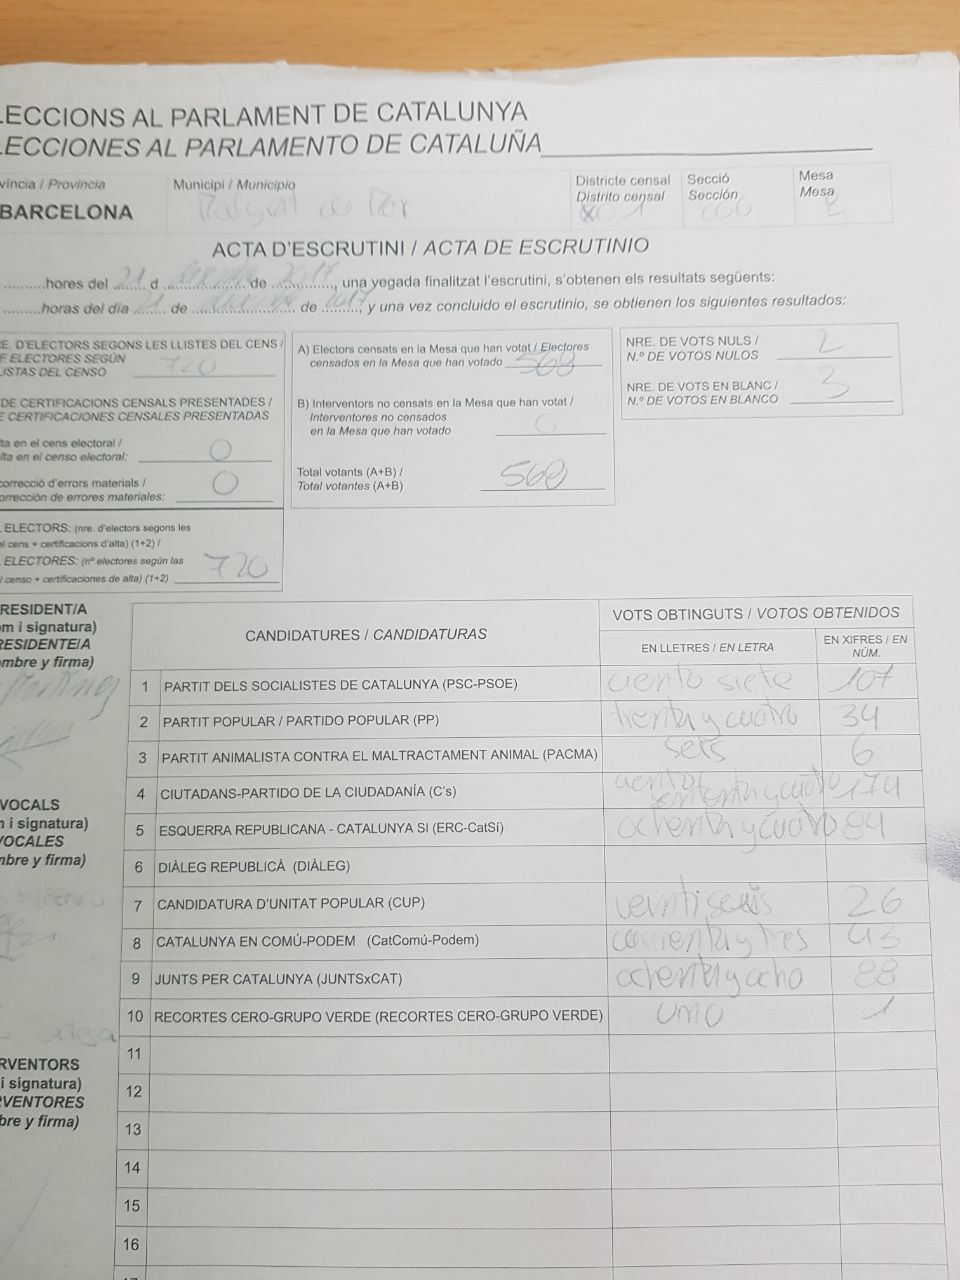 LECCIONS AL PARLAMENT DE CATALUNYA
LECCIONES AL PARLAMENTO DE CATALUÑA
víncia / Provincia
BARCELONA
Municipi / Municipio
de
Districte censal
Distrito censal
1
Secció
Sección
006
Mesa
Mesa
B
ACTA D'ESCRUTINI / ACTA DE ESCRUTINIO
hores del 21 d de 2017, una vegada finalitzat l'escrutini, s'obtenen els resultats següents:
horas del día 21 de de 2017, y una vez concluido el escrutinio, se obtienen los siguientes resultados:
RE. D'ELECTORS SEGONS LES LLISTES DEL CENS /
E ELECTORES SEGÚN
ISTAS DEL CENSO 720
DE CERTIFICACIONS CENSALS PRESENTADES /
E CERTIFICACIONES CENSALES PRESENTADAS
lta en el cens electoral /
lta en el censo electoral: 0
correcció d'errors materials /
orrección de errores materiales: 0
ELECTORS: (nre. d'electors segons les
el cens + certificacions d'alta) (1+2) /
ELECTORES: (nº electores según las
l censo + certificaciones de alta) (1+2) 720
A) Electors censats en la Mesa que han votat / Electores
censados en la Mesa que han votado 568
B) Interventors no censats en la Mesa que han votat /
Interventores no censados
en la Mesa que han votado 0
Total votants (A+B) /
Total votantes (A+B) 568
NRE. DE VOTS NULS /
N.º DE VOTOS NULOS 2
NRE. DE VOTS EN BLANC /
N.º DE VOTOS EN BLANCO 3
RESIDENT/A
om i signatura)
RESIDENTE/A
ombre y firma)
Martínez
VOCALS
m i signatura)
VOCALES
mbre y firma)
RVENTORS
i signatura)
RVENTORES
bre y firma)
CANDIDATURES / CANDIDATURAS
VOTS OBTINGUTS / VOTOS OBTENIDOS
EN LLETRES / EN LETRA
EN XIFRES / EN
NÚM.
1 PARTIT DELS SOCIALISTES DE CATALUNYA (PSC-PSOE) ciento siete 107
2 PARTIT POPULAR / PARTIDO POPULAR (PP) trenta y cuatro 34
3 PARTIT ANIMALISTA CONTRA EL MALTRACTAMENT ANIMAL (PACMA) seis 6
4 CIUTADANS-PARTIDO DE LA CIUDADANÍA (C's) 174
5 ESQUERRA REPUBLICANA - CATALUNYA SI (ERC-CatSí) ochenta y cuatro 84
6 DIÀLEG REPUBLICÀ (DIÀLEG)
7 CANDIDATURA D'UNITAT POPULAR (CUP) veintiseis 26
8 CATALUNYA EN COMÚ-PODEM (CatComú-Podem) 43
9 JUNTS PER CATALUNYA (JUNTSxCAT) ochenta y ocho 88
10 RECORTES CERO-GRUPO VERDE (RECORTES CERO-GRUPO VERDE) uno 1
11
12
13
14
15
16